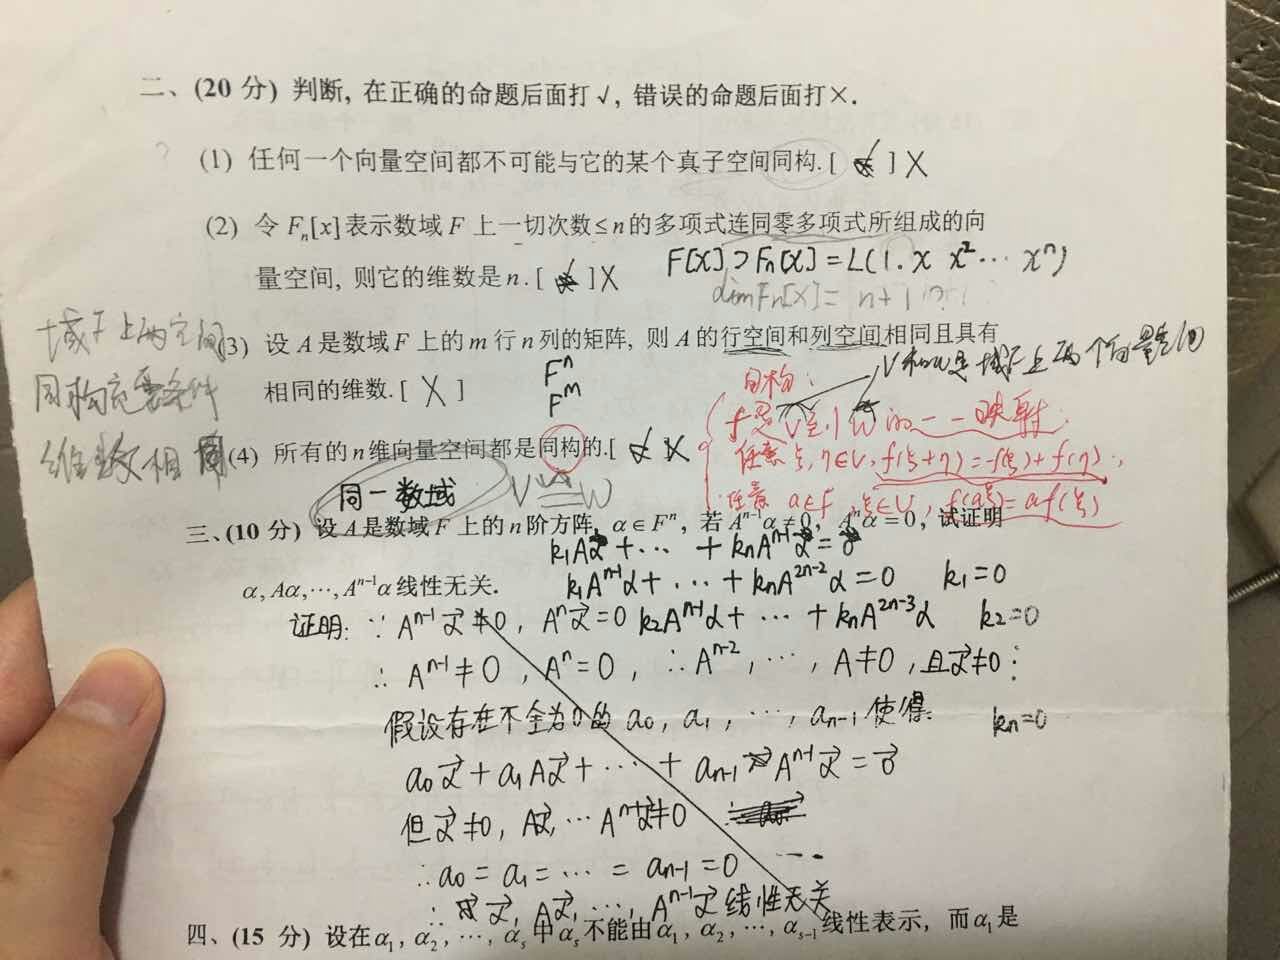 二、(20 分) 判断, 在正确的命题后面打 √, 错误的命题后面打×.
? (1) 任何一个向量空间都不可能与它的某个真子空间同构. [ ] X
(2) 令 Fₙ[x] 表示数域 F 上一切次数≤n 的多项式连同零多项式所组成的向
量空间, 则它的维数是 n. [ ] X
F[X]⊃Fₙ[X]=L(1. x x² ⋯ xⁿ)
dimFₙ[X]= n+1
域F上两空间
同构充要条件
维数相同
(3) 设 A 是数域 F 上的 m 行 n 列的矩阵, 则 A 的行空间和列空间相同且具有
相同的维数. [ X ]
Fⁿ
Fᵐ
V和W是域F上两个向量空间
同构:
f是V到W的一一映射.
任意ξ,η∈V, f(ξ+η)=f(ξ)+f(η).
任意 a∈F, ξ∈V, f(aξ)=af(ξ)
(4) 所有的 n 维向量空间都是同构的. [ X
同一数域 V≅W
三、(10 分) 设 A 是数域 F 上的 n 阶方阵, α∈Fⁿ, 若 Aⁿ⁻¹α≠0, Aⁿα=0, 试证明
α, Aα, ⋯, Aⁿ⁻¹α 线性无关.
k₁Aα + ⋯ + kₙAⁿ⁻¹α = 0
k₁Aⁿ⁻¹α + ⋯ + kₙA²ⁿ⁻²α = 0 k₁=0
k₂Aⁿ⁻¹α + ⋯ + kₙA²ⁿ⁻³α k₂=0
⋮
kₙ=0
证明: ∵ Aⁿ⁻¹α⃗≠0, Aⁿα⃗=0
∴ Aⁿ⁻¹≠0, Aⁿ=0, ∴ Aⁿ⁻², ⋯, A≠0, 且α⃗≠0
假设存在不全为0的 a₀, a₁, ⋯, aₙ₋₁ 使得:
a₀α⃗ + a₁Aα⃗ + ⋯ + aₙ₋₁ Aⁿ⁻¹α⃗ = 0⃗
但α⃗≠0, Aα⃗, ⋯ Aⁿ⁻¹α⃗≠0
∴ a₀ = a₁ = ⋯ = aₙ₋₁ = 0
∴ α⃗, Aα⃗, ⋯, Aⁿ⁻¹α⃗ 线性无关
四、(15 分) 设在 α₁, α₂, ⋯, αₛ 中 αₛ 不能由 α₁, α₂, ⋯, αₛ₋₁ 线性表示, 而 α₁ 是